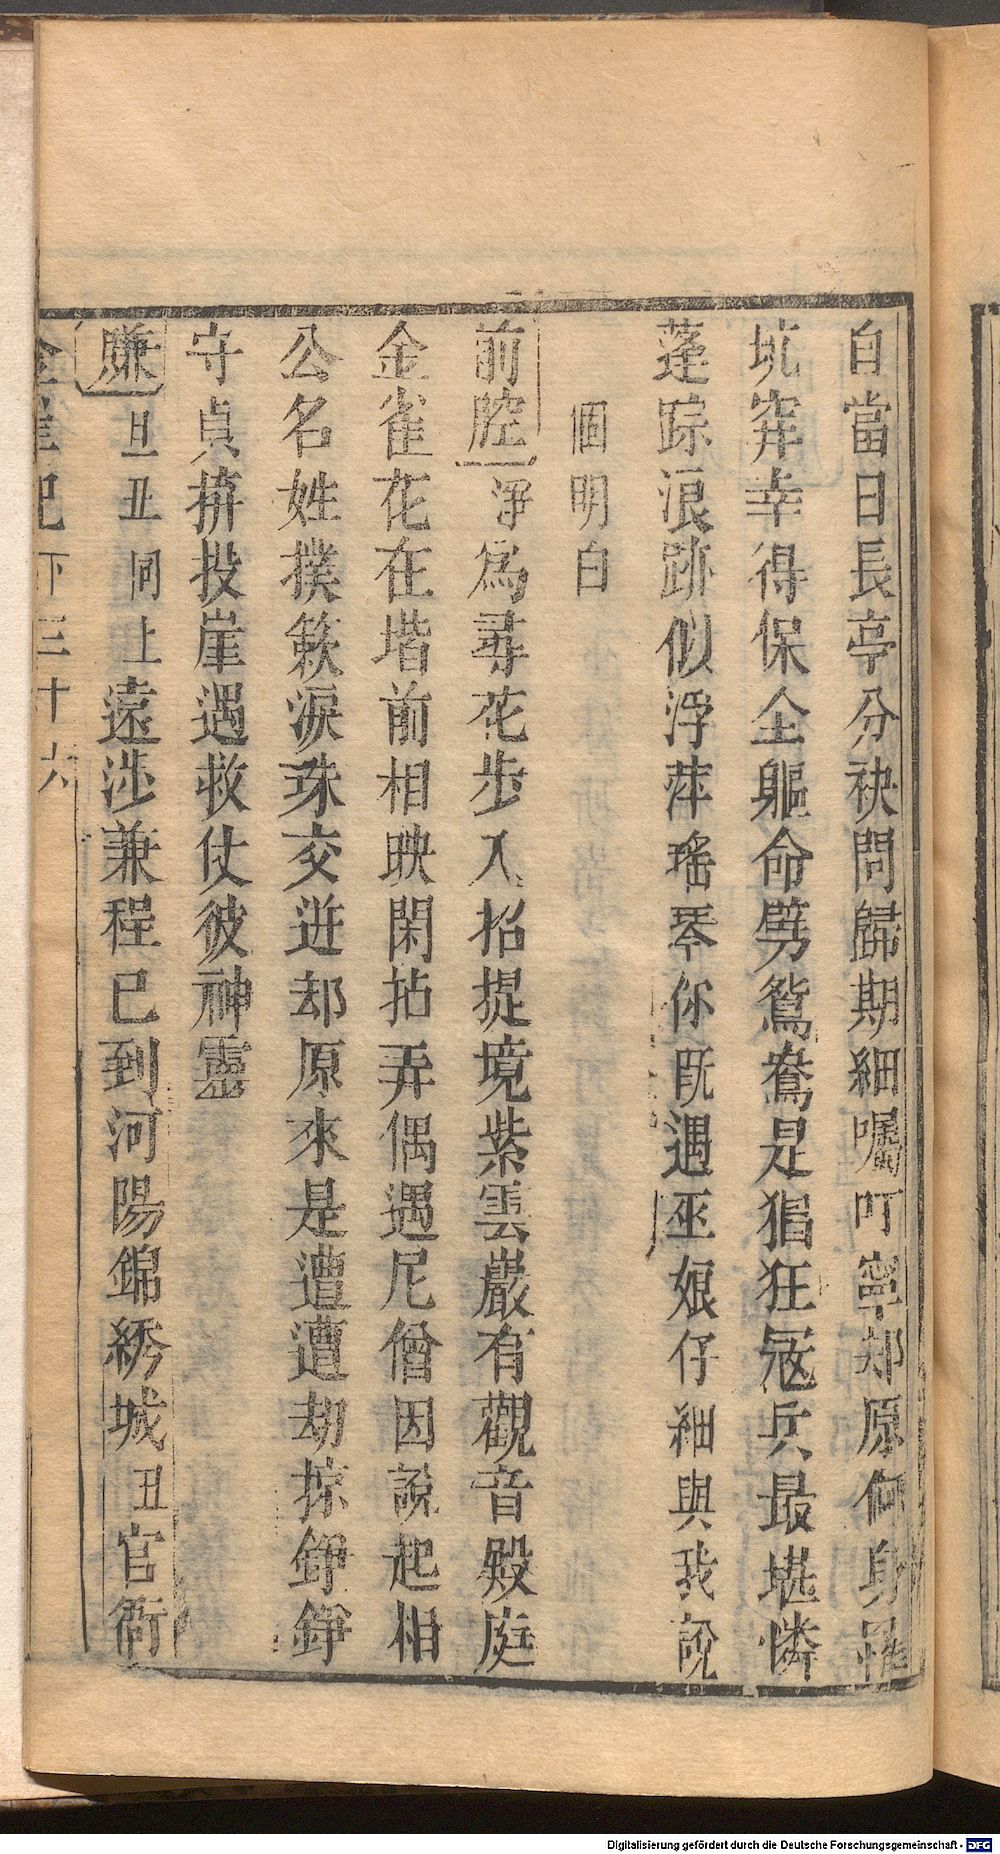 自當日長亭分袂問歸期細囑叮寧却原何身罹
坑穽幸得保全軀命劈鴛鴦是猖狂冦兵最堪憐
蓬踪浪跡似浮萍瑤琴你旣遇巫娘仔細與我說
個明白
前腔淨為尋花步入招提境紫雲巖有觀音殿庭
金雀花在堦前相映閑拈弄偶遇尼僧因說起相
公名姓撲簌淚珠交迸却原來是遭遭劫掠錚錚
守貞拚投崖遇救仗彼神靈
賺旦丑同上遠涉兼程已到河陽錦綉城丑官衙
金雀記下三十六
Digitalisierung gefördert durch die Deutsche Forschungsgemeinschaft - DFG